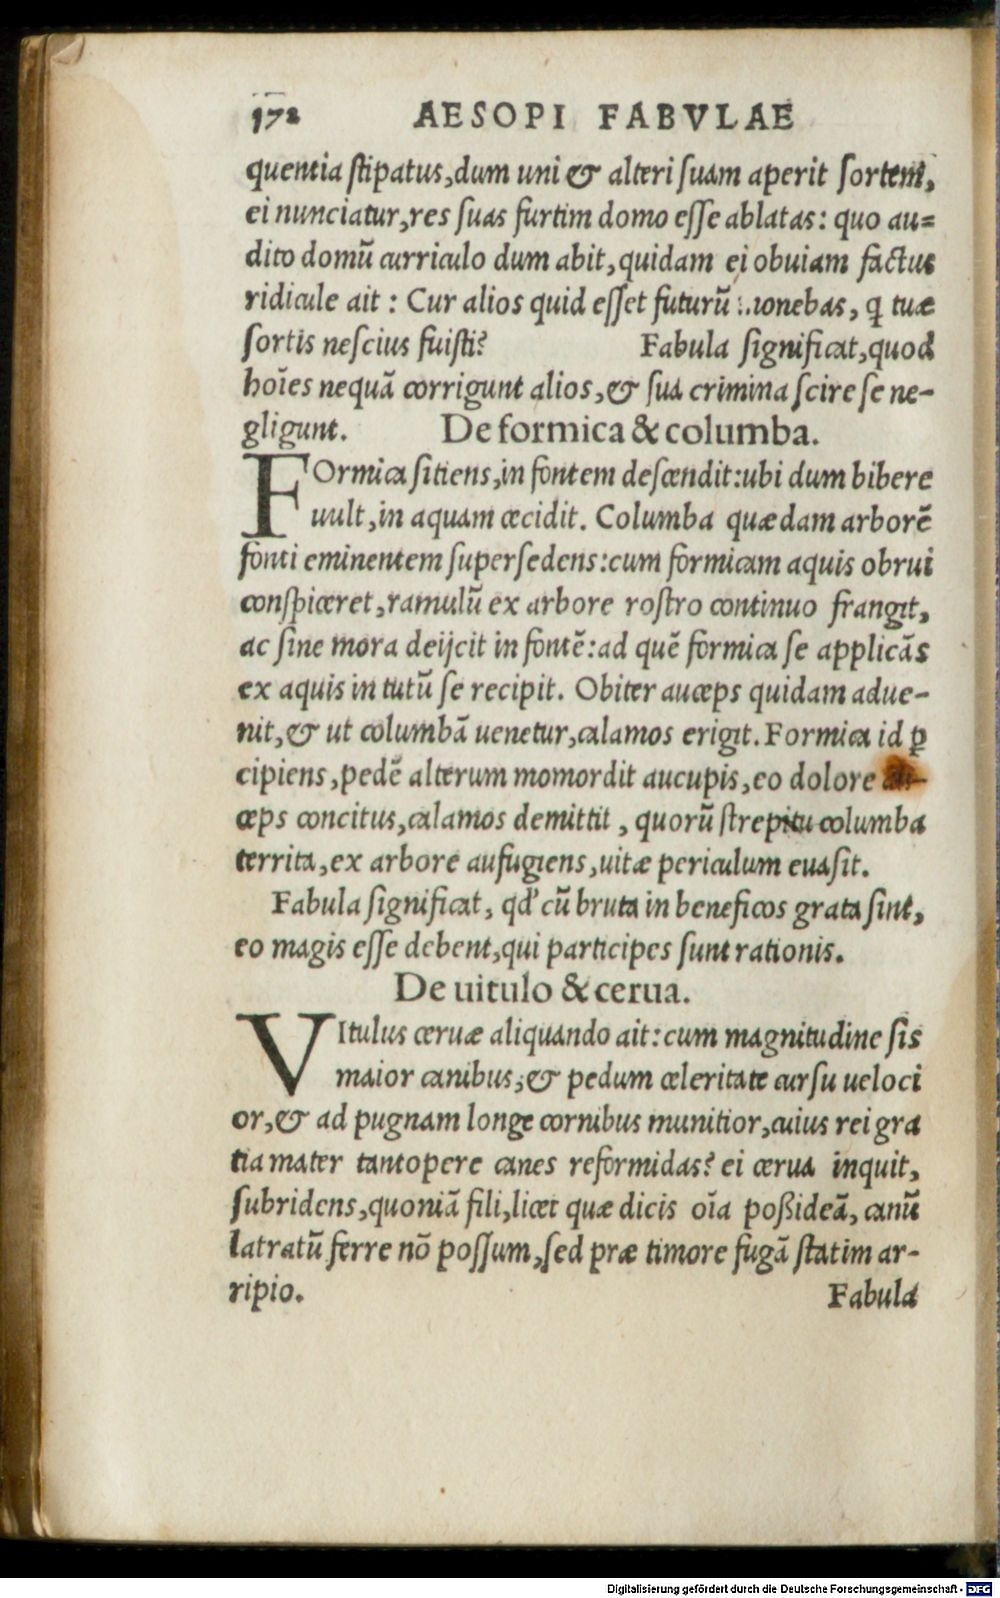 172 AESOPI FABVLAE
quentia stipatus, dum uni & alteri suam aperit sortem,
ei nunciatur, res suas furtim domo esse ablatas: quo au=
dito domū curriculo dum abit, quidam ei obuiam factus
ridicule ait: Cur alios quid esset futurū monebas, ꝗ tuæ
sortis nescius fuisti? Fabula significat, quod
hoīes nequā corrigunt alios, & sua crimina scire se ne-
gligunt. De formica & columba.
FOrmica sitiens, in fontem descendit: ubi dum bibere
uult, in aquam cecidit. Columba quædam arborē
fonti eminentem supersedens: cum formicam aquis obrui
conspiceret, ramulū ex arbore rostro continuo frangit,
ac sine mora deijcit in fontē: ad quē formica se applicās
ex aquis in tutū se recipit. Obiter auceps quidam adue-
nit, & ut columbā uenetur, calamos erigit. Formica id ꝑ
cipiens, pedē alterum momordit aucupis, eo dolore au-
ceps concitus, calamos demittit, quorū strepitu columba
territa, ex arbore aufugiens, uitæ periculum euasit.
Fabula significat, qd' cū bruta in beneficos grata sint,
eo magis esse debent, qui participes sunt rationis.
De uitulo & cerua.
VItulus ceruæ aliquando ait: cum magnitudine sis
maior canibus, & pedum celeritate cursu ueloci
or, & ad pugnam longe cornibus munitior, cuius rei gra
tia mater tantopere canes reformidas? ei cerua inquit,
subridens, quoniā fili, licet quæ dicis oīa poßideā, canū
latratū ferre nō possum, sed præ timore fugā statim ar-
ripio. Fabula
Digitalisierung gefördert durch die Deutsche Forschungsgemeinschaft - DFG